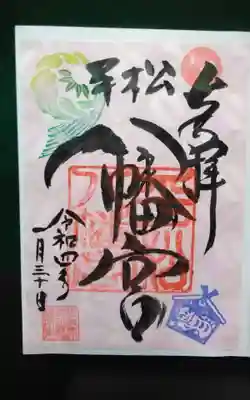 奉拝
松
八幡宮
令和四年
一月三十日